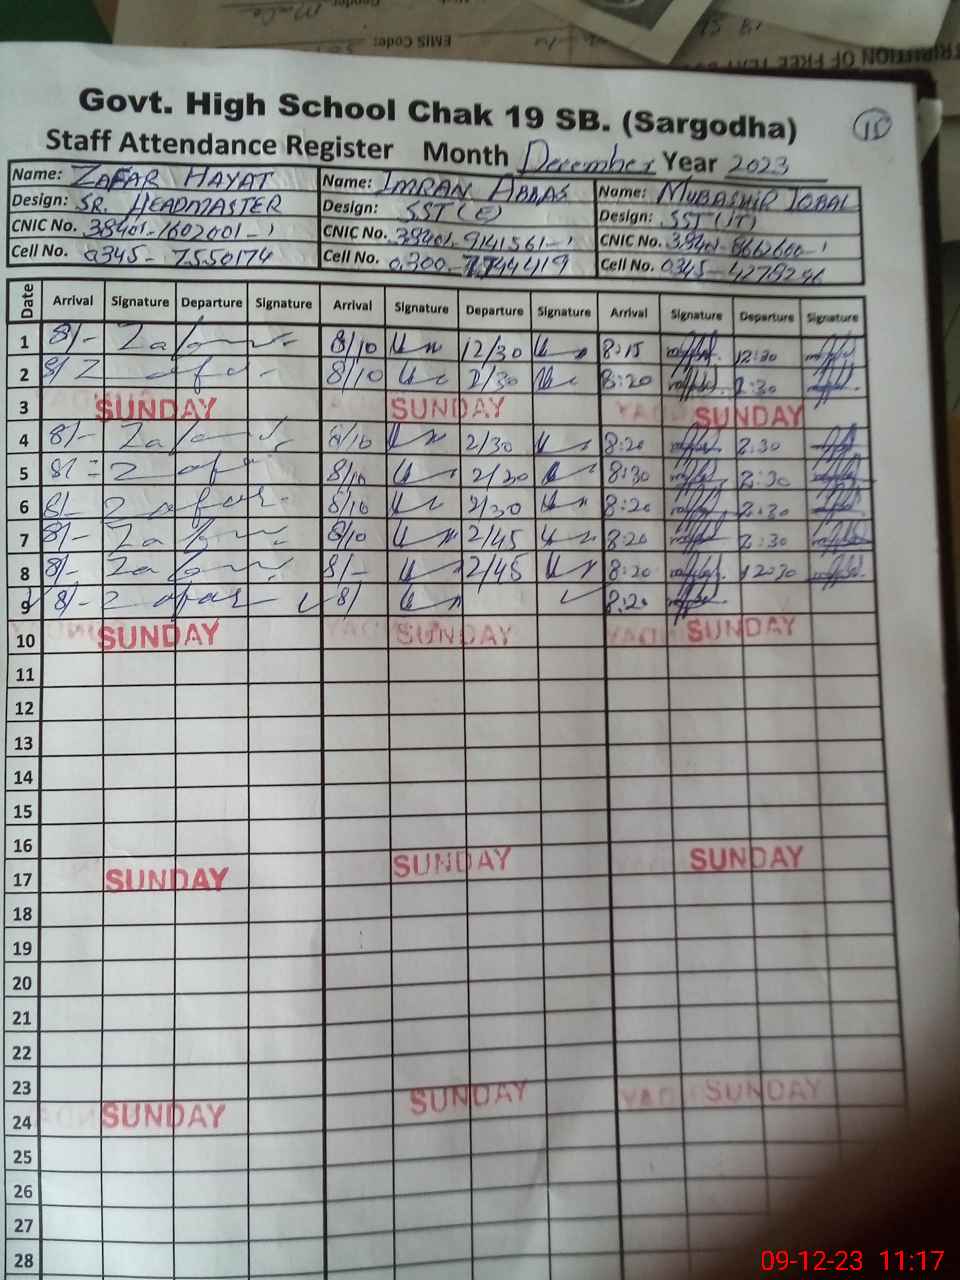 EMIS Code:
Govt. High School Chak 19 SB. (Sargodha)
Staff Attendance Register Month December Year 2023
Name: ZAFAR HAYAT Name: IMRAN ABBAS Name: MUBASHIR IQBAL
Design: SR. HEADMASTER Design: SST(E) Design: SST(IT)
CNIC No. 38401-1602001-1 CNIC No. 38401-9141561-1 CNIC No. 38401-8662600-1
Cell No. 0345-7550174 Cell No. 0300- Cell No. 0345-4279296
Date Arrival Signature Departure Signature Arrival Signature Departure Signature Arrival Signature Departure Signature
1 8/- Zafar 8/10 12/30 8:15 12:30
2 8/ Zafar 8/10 2/30 8:20 2:30
3 SUNDAY SUNDAY SUNDAY
4 8/- Zafar 8/10 2/30 8:20 2:30
5 8/= Zafar 8/10 2/30 8:30 2:30
6 8/- Zafar 8/10 2/30 8:20 2:30
7 8/- Zafar 8/10 2/45 8:20 2:30
8 8/- Zafar 8/- 12/45 8:20 12:30
9 8/- Zafar 8/ 8:20
10 SUNDAY SUNDAY SUNDAY
11
12
13
14
15
16
17 SUNDAY SUNDAY SUNDAY
18
19
20
21
22
23
24 SUNDAY SUNDAY SUNDAY
25
26
27
28
09-12-23 11:17